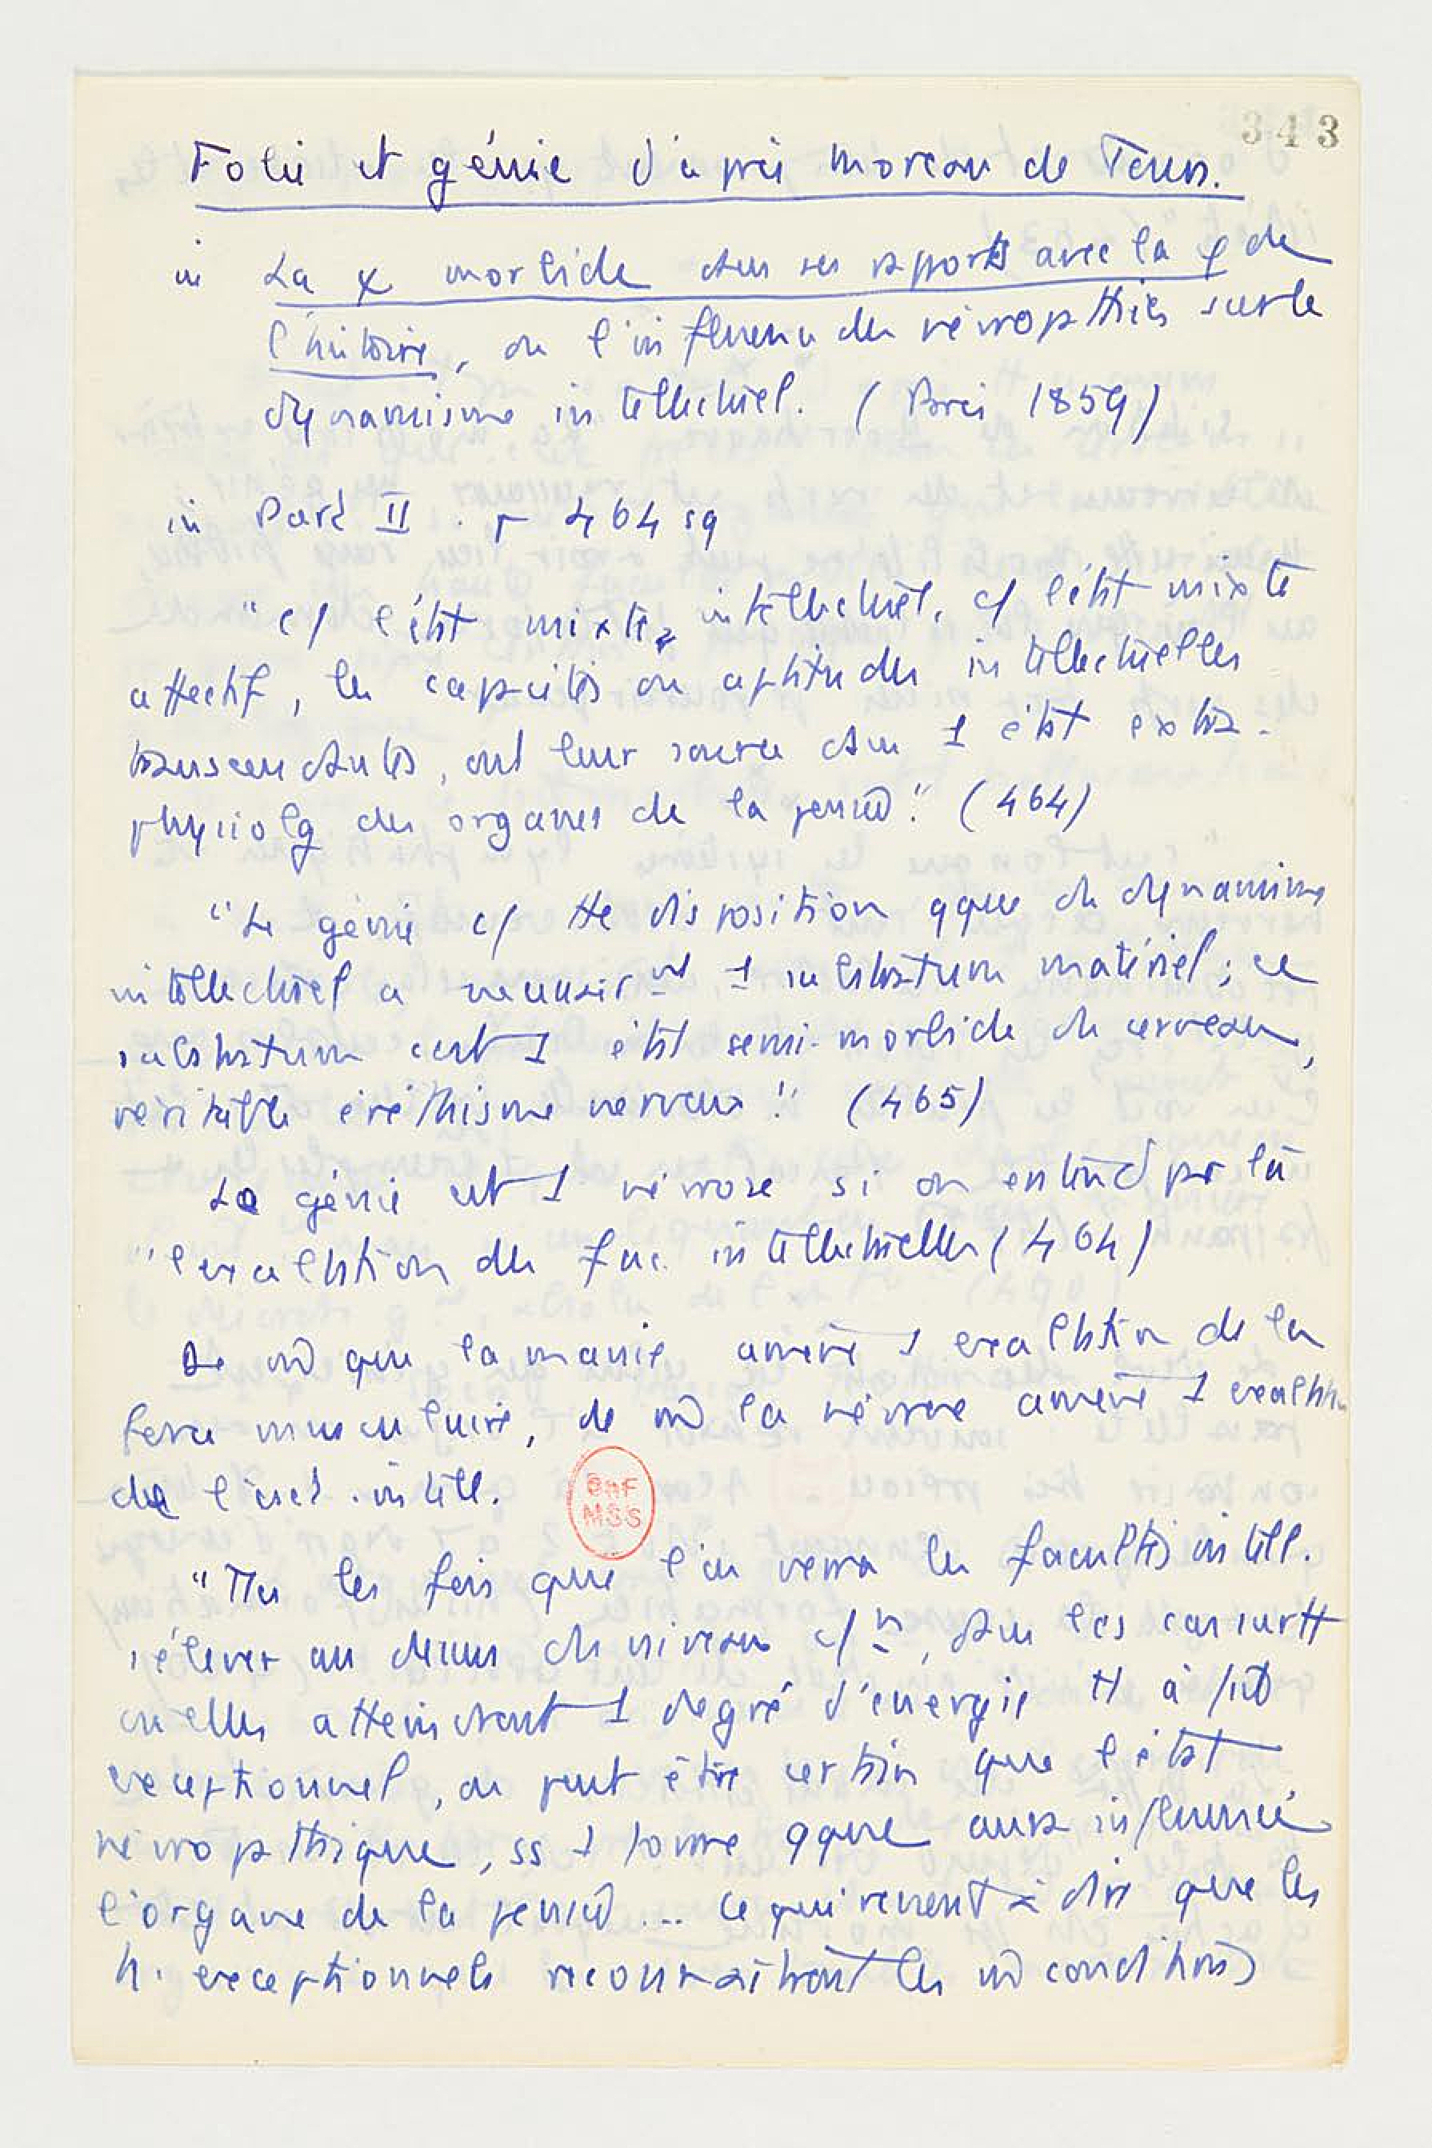 343
Folie et génie d'après Moreau de Tours.
in La ψ morbide dans ses rapports avec la φ de
l'histoire, ou l'influence des névropathies sur le
dynamisme intellectuel. (Paris 1859)
in Part II . p 464 sq
"c/ l'état mixte intellectuel, c/ l'état mixte
affectif, les capacités ou aptitudes intellectuelles
transcendantes, ont leur source dans 1 état extra-
physiolg des organes de la pensée." (464)
"Le génie c/ tte disposition qque du dynamisme
intellectuel a nécessairnt 1 substratum matériel ; ce
substratum c'est 1 état semi-morbide du cerveau,
véritable éréthisme nerveux". (465)
Le génie est 1 névrose si on entend par là
"l'exaltation des fac. intellectuelles (464)
De m̂ que la manie amène 1 exaltation de la
force musculaire, de m̂ la névrose amène 1 exaltation
de l'act. intell.
BnF
MSS
"Ttes les fois que l'on verra les facultés intell.
s'élever au dessus du niveau c/n, dans les cas surtt
où elles atteindront 1 degré d'énergie tt à fait
exceptionnel, on peut être certain que l'état
névropathique, ss 1 forme qque aura influencé
l'organe de la pensée ... ce qui revient à dire que les
h. exceptionnels reconnaîtront les m̂ conditions